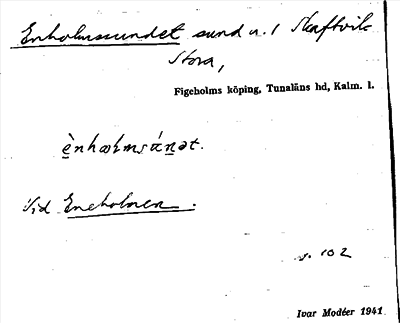 Enholmssundet sund u. l Skaftvik
Stora,
Figeholms köping, Tunaläns hd, Kalm. l.
Vid Eneholmen.
s. 102
Ivar Modéer 1941